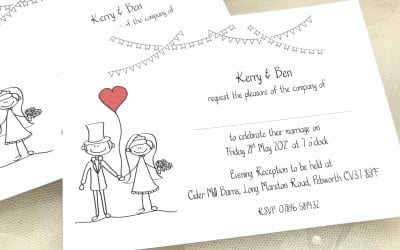 Kerry & Ben
of the company of
Kerry & Ben
request the pleasure of the company of
to celebrate their marriage on
Friday 21st May at 7 o'clock
Evening Reception to be held at
Cider Mill Long Marston Road, Pebworth CV37
RSVP